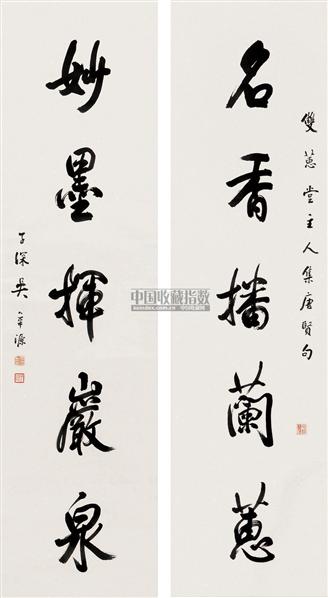 雙蕙堂主人集唐賢句
名香播蘭蕙
妙墨揮巖泉
子深吳華源
中国收藏指数